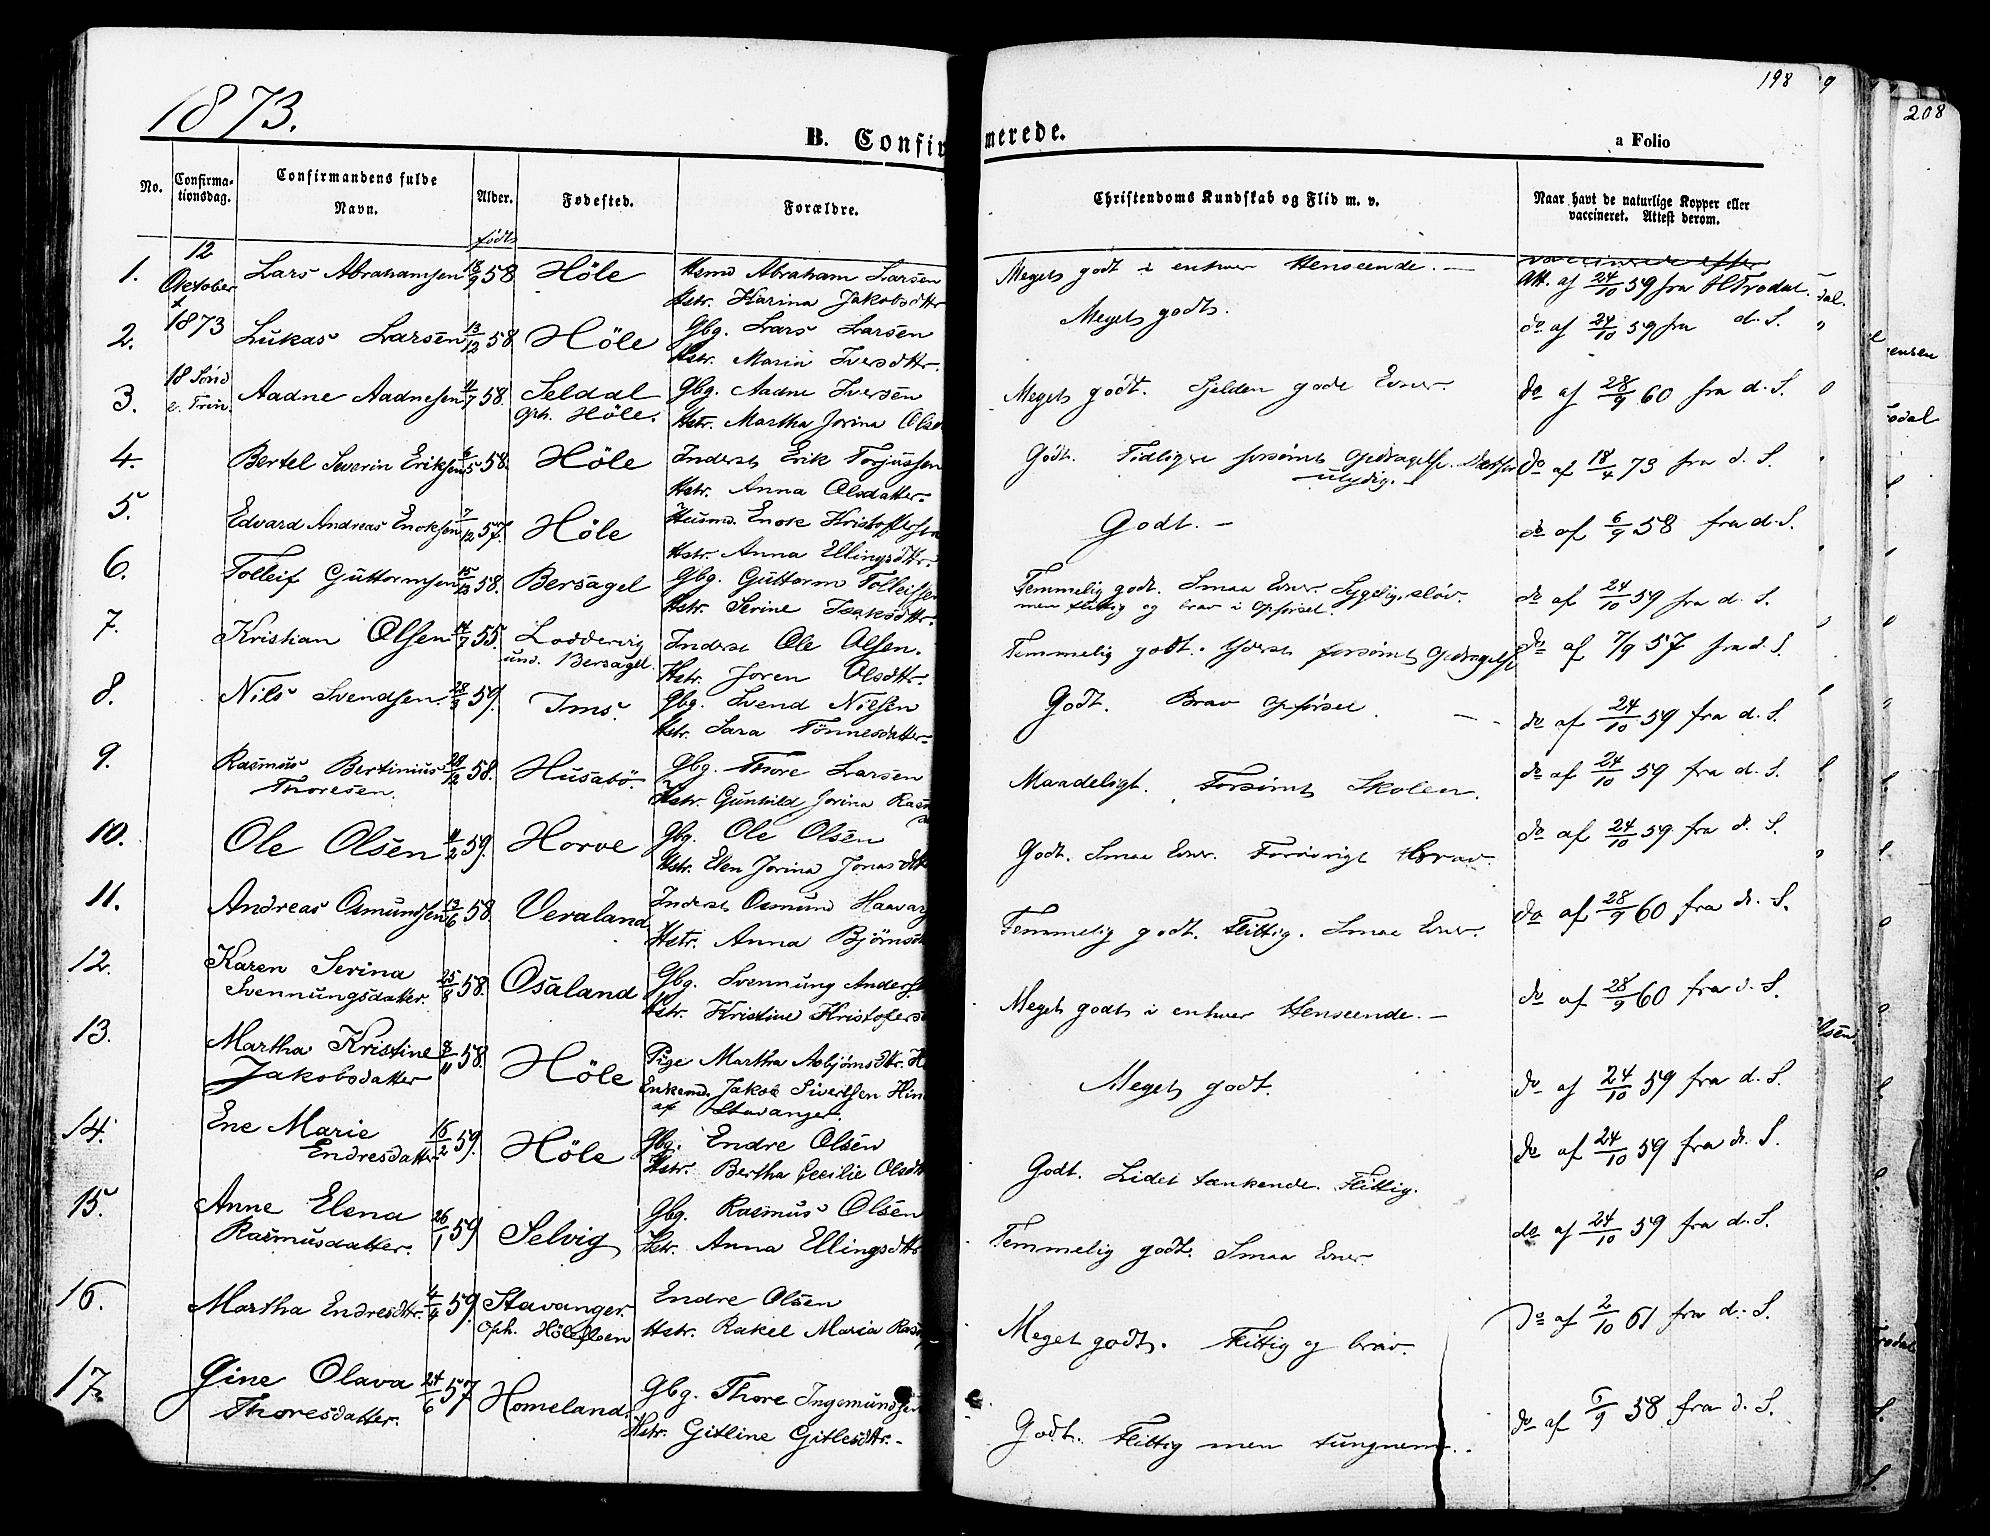 1873.
198
9
208
B. Confirmerede.
a Folio
No.
Confirma-
tionsdag.
Confirmandens fulde
Navn.
Alder.
Fødested.
Forældre.
Christendoms Kundskab og Flid m. v.
Naar havt de naturlige Kopper eller
vaccineret. Attest derom.
født
12
Oktober
1873
18 Sønd
e. Trin.
1. Lars Abrahamsen 18/9 58 Höle Husmd Abraham Larsen
Hstr. Karina Jakobsdttr
Meget godt i enhver Henseende. —
Att. af 24/10 59 fra H Trodal.
2. Lukas Larsen 13/12 58. Höle Gbg. Lars Larsen
Hstr. Maria Iversdttr.
Meget godt.
do af 24/10 59 fra d. S.
3. Aadne Aadnesen 4/7 58. Seldal Gbg. Aadne Iversen
Oph. Höle. Hstr. Martha Jorina Olsd
Meget godt. Sjelden gode Evner.
do af 28/9 60 fra d. S.
4. Bertel Severin Eriksen 6/5 58. Höle Inderst Erik Torjussen
Hstr. Anna Olsdatter.
Godt. Tidligere forsømt Opdragelse.
ulydig. —
do af 18/4 73 fra d. S.
5. Edvard Andreas Enoksen 7/12 57. Höle Husmd. Enok Kristoffersen
Hstr. Anna Ellingsdttr.
Godt. —
do af 6/9 58 fra d. S.
6. Tolleif Guttormsen 15/12 58. Bersagel Gbg. Guttorm Tolleifsen
Hstr. Serine Isaksdttr.
Temmelig godt. Smaa Evner. Sygelig, sløv.
men flittig og brav i Opførsel.
do af 24/10 59 fra d. S.
7. Kristian Olsen 14/7 55. Loddervig Inderst Ole Olsen.
und. Bersagel. Hstr. Joren Olsdttr.
Temmelig godt. Yderst forsømt Opdragelse
do af 7/9 57 fra d. S.
8. Nils Svendsen. 28/3 59. Ims. Gbg. Svend Nilsen
Hstr. Sara Tönnesdatter
Godt. Brav Opførsel.
do af 24/10 59 fra d. S.
9. Rasmus Bertinius 29/12 58. Husabö. Gbg. Thore Larsen
Thoresen. Hstr. Gunhild Jorina Rasm
Maadeligt. Forsömt Skolen.
do af 24/10 59 fra d. S.
10. Ole Olsen 4/2 59. Horve Gbg. Ole Olsen
Hstr. Elen Jorina Jonasdttr
Godt. Smaa Evner. Forøvrigt brav.
do af 24/10 59 fra d. S.
11. Andreas Osmundsen 13/6 58 Veraland Inderst Osmund Haavar
Hstr. Anna Bjørnsd
Temmelig godt. Flittig. Smaa Evner.
do af 28/9 60 fra d. S.
12. Karen Serina 25/8 58. Osaland Gbg. Svennung Anders
Svennungsdatter. Hstr. Kristine Kristofers
Meget godt i enhver Henseende. —
do af 28/9 60 fra d. S.
13. Martha Kristine 8/11 58. Höle Pige Martha Asbjørnsdttr. H
Jakobsdatter Enkemd. Jakob Sivertsen Hin
af Stavanger.
Meget godt.
do af 24/10 59 fra d. S.
14. Ene Marie 16/2 59. Höle Gbg. Endre Olsen
Endresdatter Hstr. Bertha Cecilie Olsdtt
Godt. Lidet tænkende. Flittig.
do af 24/10 59 fra d. S.
15. Anne Elena 26/1 59 Selvig Gbg. Rasmus Olsen
Rasmusdatter. Hstr. Anna Ellingsdttr
Temmelig godt. Smaa Evner.
do af 24/10 59 fra d. S.
16. Martha Endresdttr. 4/4 59. Stavanger. Endre Olsen
Oph. Hölesloen Hstr. Rakel Maria Ras
Meget godt. Flittig og brav.
Do af 2/10 61 fra d. S.
17. Gine Olava 24/6 57 Homeland. Gbg. Thore Ingemundsen
Thoresdatter. Hstr. Gitline Gitlesdttr.
Godt. Flittig men tungnem.
do af 6/9 58 fra d. S.